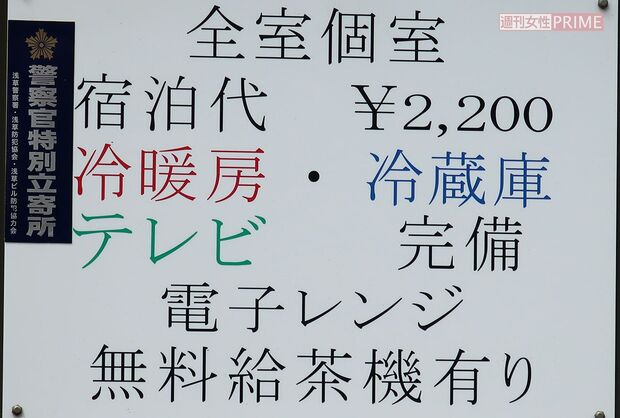 週刊女性PRIME
全室個室
宿泊代 ¥2,200
冷暖房・冷蔵庫
テレビ 完備
電子レンジ
無料給茶機有り
警察官特別立寄所
浅草警察署・浅草防犯協会・浅草ビル防犯協力会